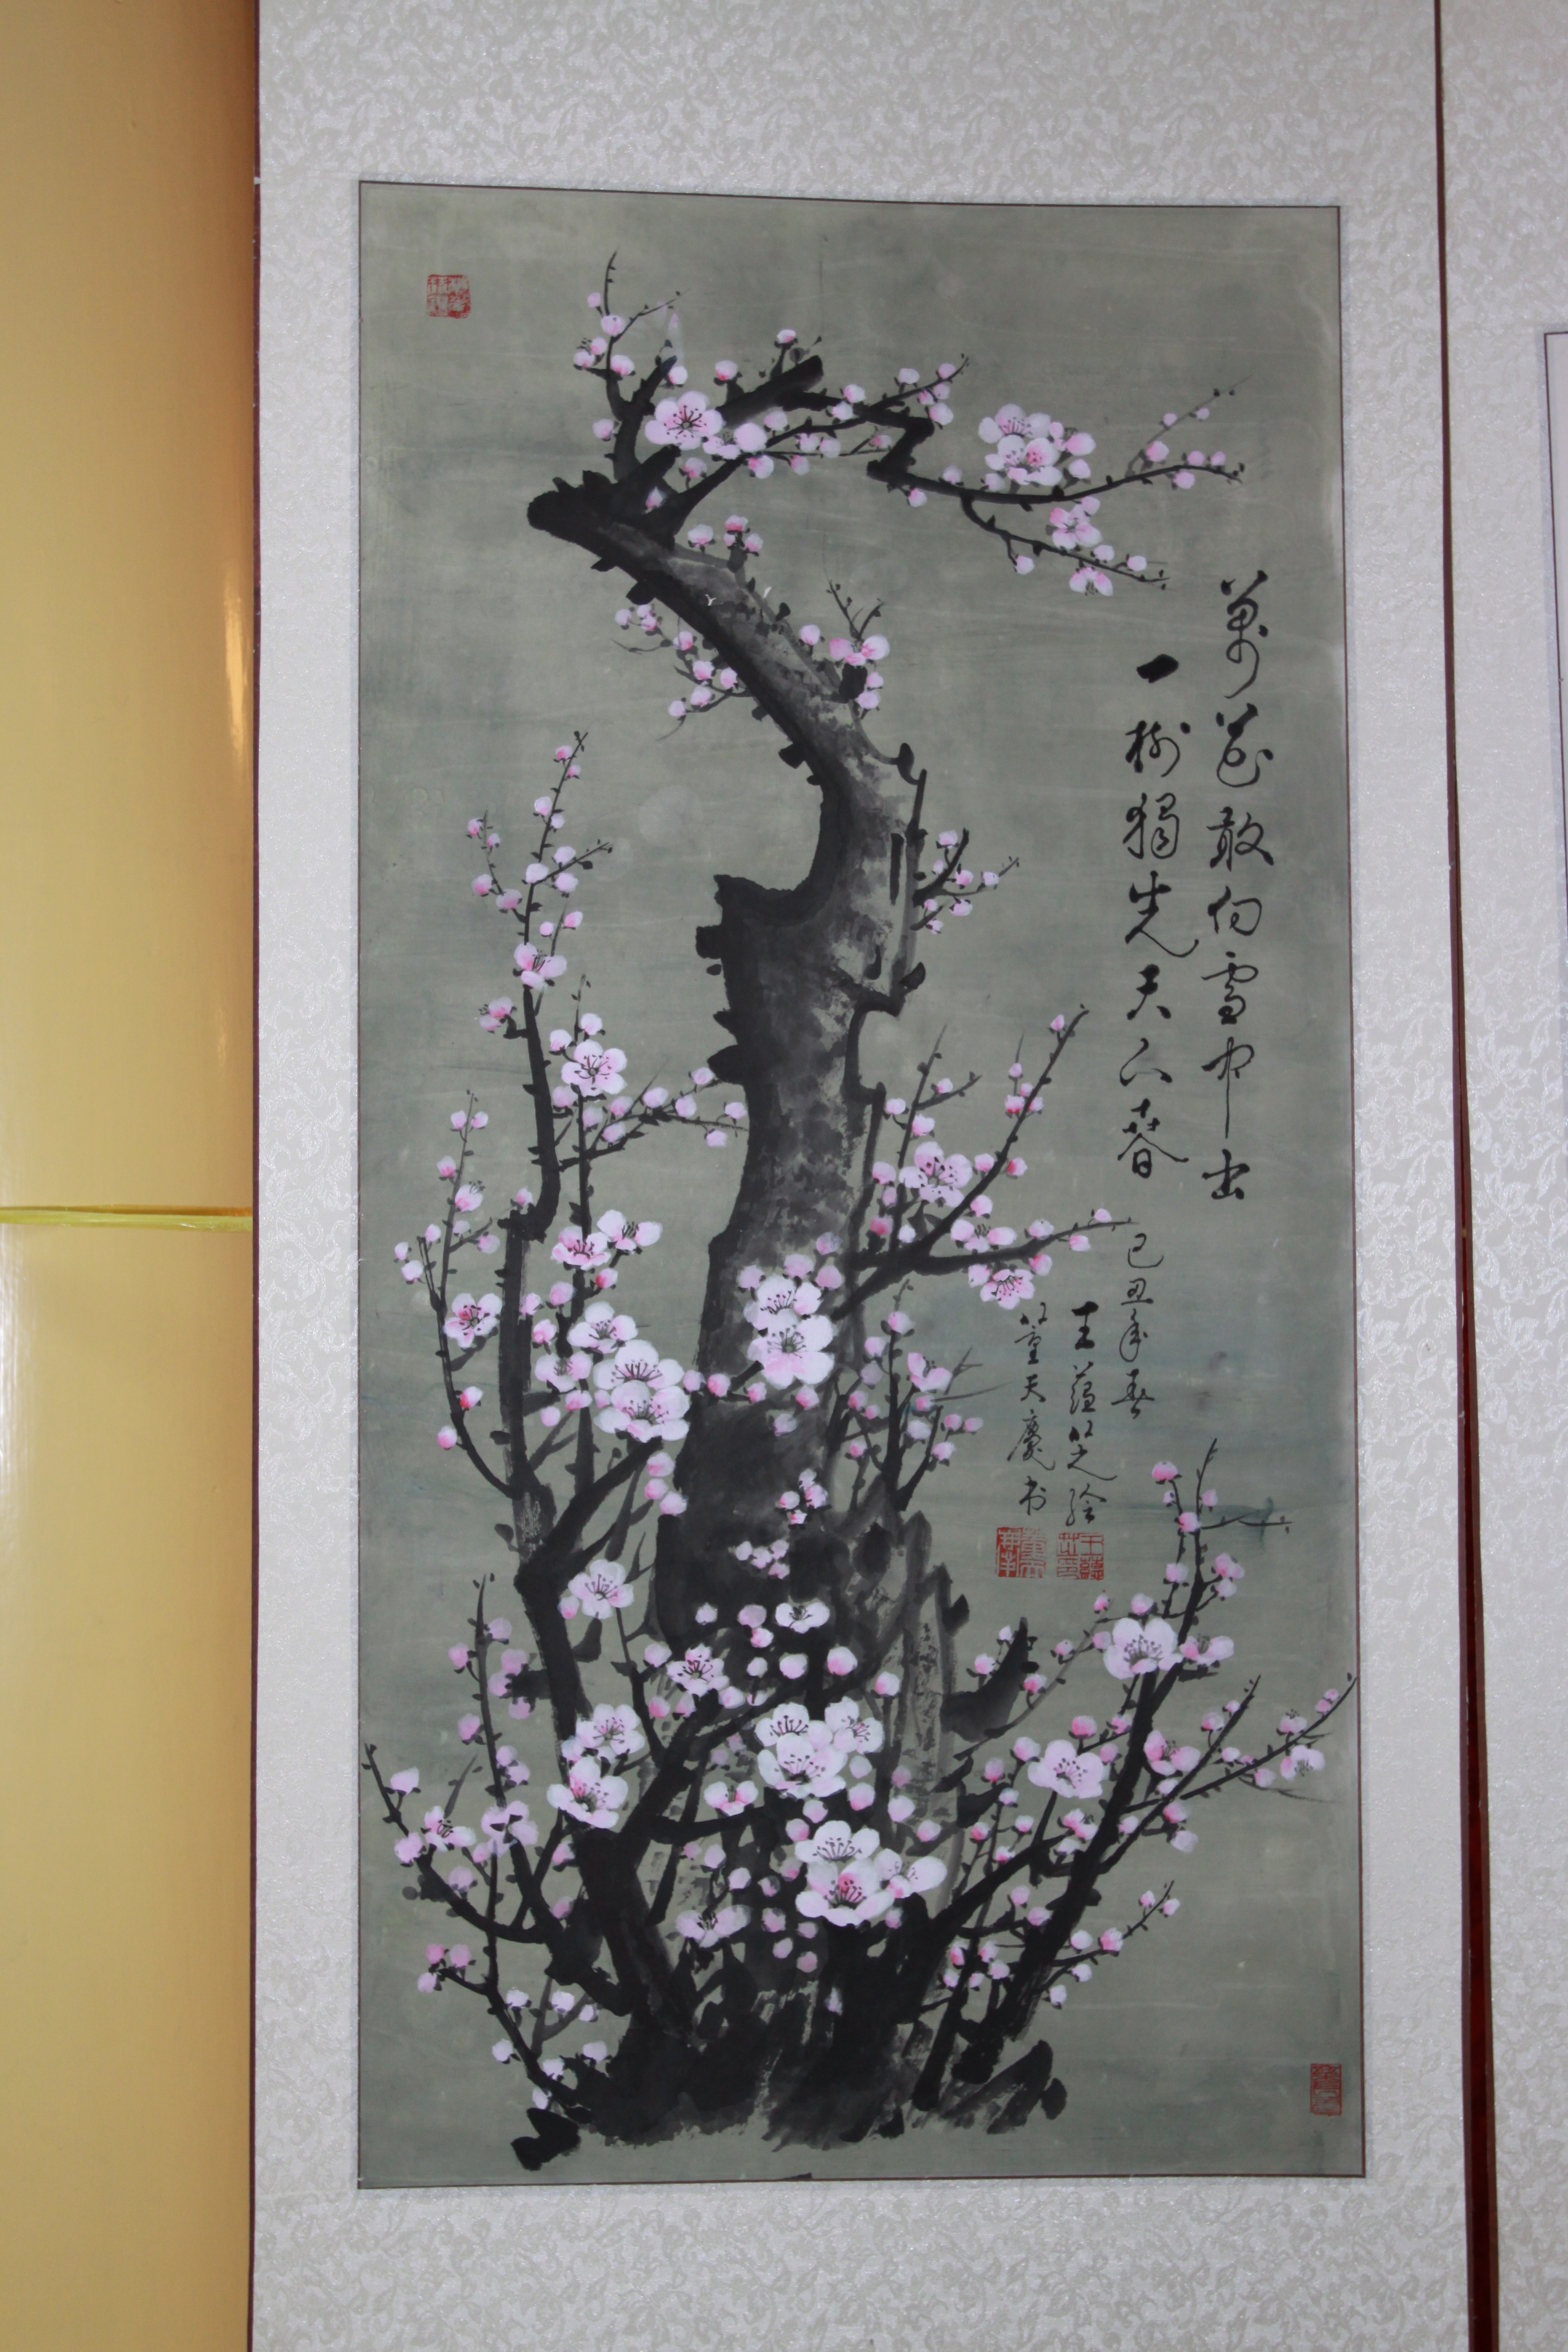 萬花敢向雪中出
一樹獨先天下春
己丑年春
王蕴芝绘
董天慶书